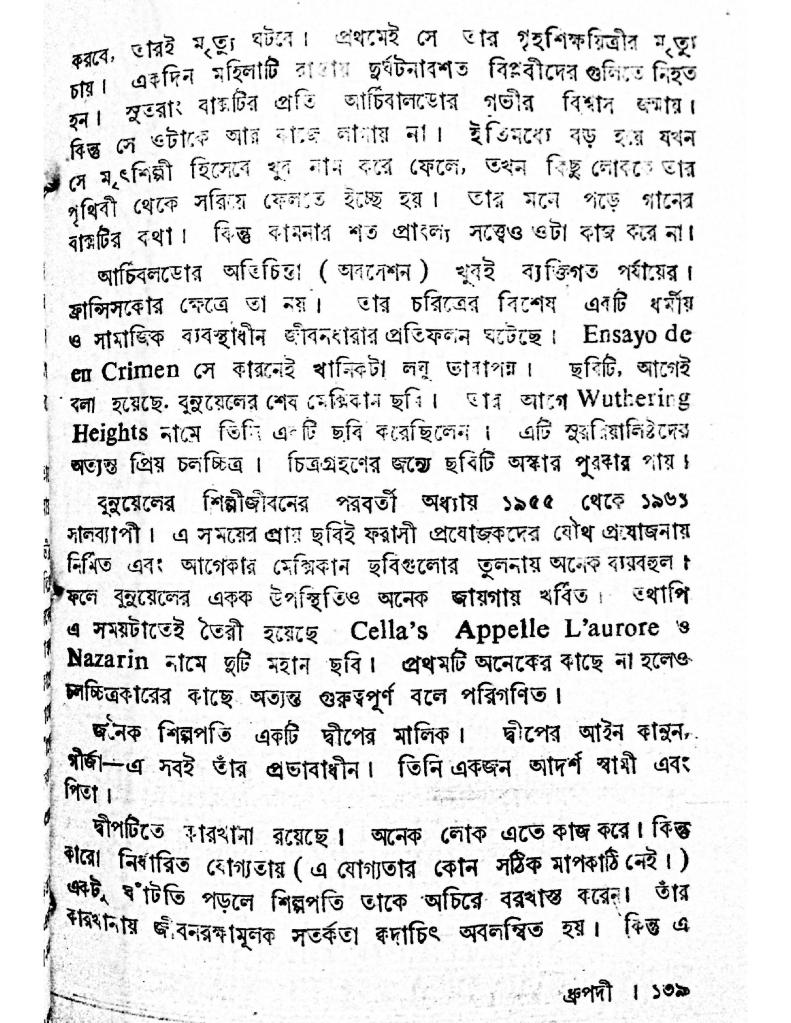 করবে, তারই মৃত্যু ঘটবে। প্রথমেই সে তার গৃহশিক্ষয়িত্রীর মৃত্যু
চায়। একদিন মহিলাটি রাস্তায় দুর্ঘটনাবশত বিপ্লবীদের গুলিতে নিহত
হন। সুতরাং বাক্সটির প্রতি আর্চিবালডোর গভীর বিশ্বাস জন্মায়।
কিন্তু সে ওটাকে আর কাজে লাগায় না। ইতিমধ্যে বড় হয়ে যখন
সে মৃৎশিল্পী হিসেবে খুব নাম করে ফেলে, তখন কিছু লোককে তার
পৃথিবী থেকে সরিয়ে ফেলতে ইচ্ছে হয়। তার মনে পড়ে গানের
বাক্সটির কথা। কিন্তু কামনার শত প্রাবল্য সত্ত্বেও ওটা কাজ করে না।
আর্চিবলডোর অতিচিন্তা ( অবসেশন ) খুবই ব্যক্তিগত পর্যায়ের।
ফ্রান্সিসকোর ক্ষেত্রে তা নয়। তার চরিত্রের বিশেষ একটি ধর্মীয়
ও সামাজিক ব্যবস্থাধীন জীবনধারার প্রতিফলন ঘটেছে। Ensayo de
en Crimen সে কারনেই খানিকটা লঘু ভাবাপন্ন। ছবিটি, আগেই
বলা হয়েছে, বুনুয়েলের শেষ মেক্সিকান ছবি। তার আগে Wuthering
Heights নামে তিনি একটি ছবি করেছিলেন । এটি সুররিয়ালিষ্টদের
অত্যন্ত প্রিয় চলচ্চিত্র । চিত্রগ্রহণের জন্যে ছবিটি অস্কার পুরস্কার পায়।
বুনুয়েলের শিল্পীজীবনের পরবর্তী অধ্যায় ১৯৫৫ থেকে ১৯৬১
সালব্যাপী। এ সময়ের প্রায় ছবিই ফরাসী প্রযোজকদের যৌথ প্রযোজনায়
নির্মিত এবং আগেকার মেক্সিকান ছবিগুলোর তুলনায় অনেক ব্যয়বহুল।
ফলে বুনুয়েলের একক উপস্থিতিও অনেক জায়গায় খর্বিত। তথাপি
এ সময়টাতেই তৈরী হয়েছে Cella's Appelle L'aurore ও
Nazarin নামে দুটি মহান ছবি। প্রথমটি অনেকের কাছে না হলেও
চলচ্চিত্রকারের কাছে অত্যন্ত গুরুত্বপূর্ণ বলে পরিগণিত।
জনৈক শিল্পপতি একটি দ্বীপের মালিক। দ্বীপের আইন কানুন,
গীর্জা—এ সবই তাঁর প্রভাবাধীন। তিনি একজন আদর্শ স্বামী এবং
পিতা।
দ্বীপটিতে কারখানা রয়েছে। অনেক লোক এতে কাজ করে। কিন্তু
কারো নির্ধারিত যোগ্যতায় ( এ যোগ্যতার কোন সঠিক মাপকাঠি নেই। )
একটু ঘাঁটতি পড়লে শিল্পপতি তাকে অচিরে বরখাস্ত করেন। তাঁর
কারখানায় জীবনরক্ষামূলক সতর্কতা কদাচিৎ অবলম্বিত হয়। কিন্তু এ
ধ্রুপদী । ১৩৯